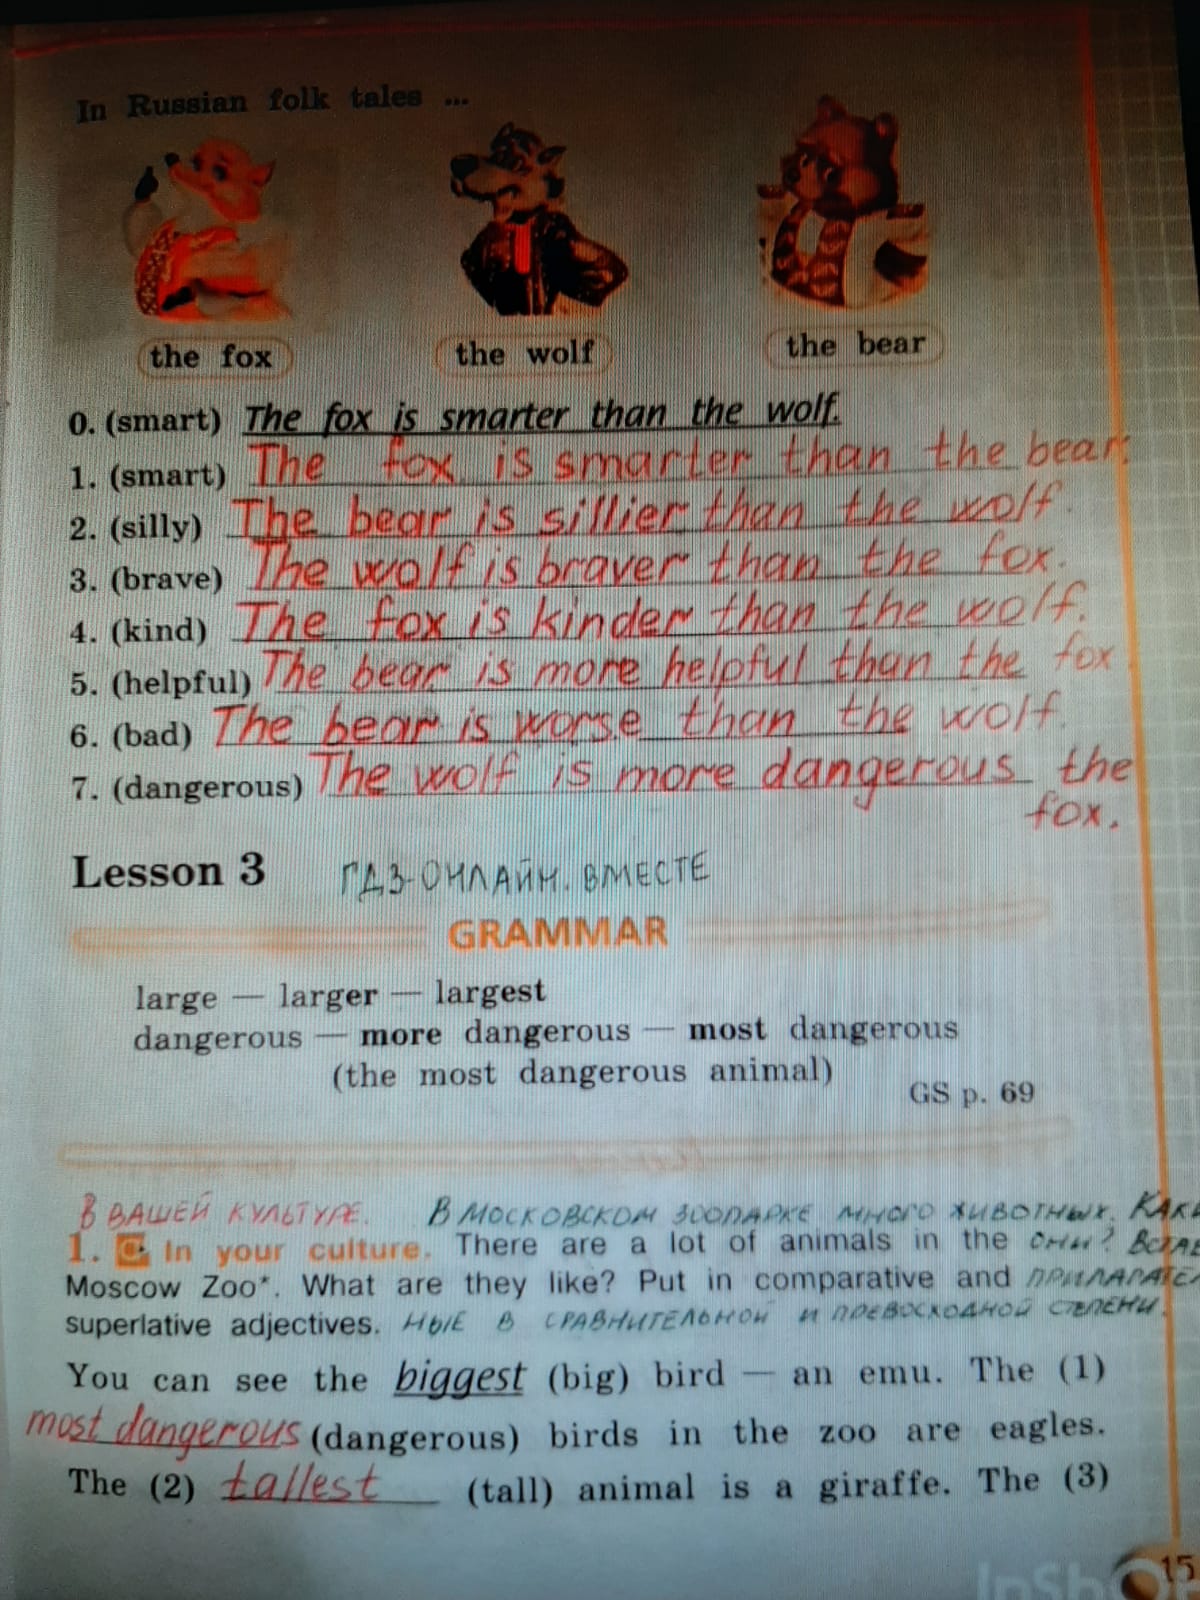 In Russian folk tales ...
the fox the wolf the bear
0. (smart) The fox is smarter than the wolf.
1. (smart) The fox is smarter than the bear.
2. (silly) The bear is sillier than the wolf.
3. (brave) The wolf is braver than the fox.
4. (kind) The fox is kinder than the wolf.
5. (helpful) The bear is more helpful than the fox
6. (bad) The bear is worse than the wolf.
7. (dangerous) The wolf is more dangerous the
fox.
Lesson 3 ГДЗ-ОНЛАЙН. ВМЕСТЕ
GRAMMAR
large — larger — largest
dangerous — more dangerous — most dangerous
(the most dangerous animal)
GS p. 69
В ВАШЕЙ КУЛЬТУРЕ. В МОСКОВСКОМ ЗООПАРКЕ МНОГО ЖИВОТНЫХ.
1. In your culture. There are a lot of animals in the ОНИ?
Moscow Zoo*. What are they like? Put in comparative and
superlative adjectives. НЫЕ В СРАВНИТЕЛЬНОЙ И ПРЕВОСХОДНОЙ СТЕПЕНИ.
You can see the biggest (big) bird — an emu. The (1)
most dangerous (dangerous) birds in the zoo are eagles.
The (2) tallest (tall) animal is a giraffe. The (3)
15